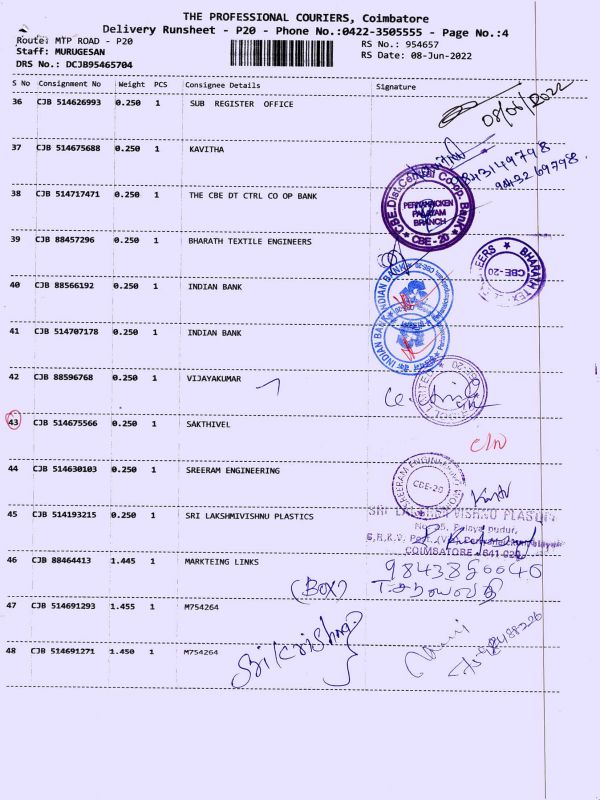 THE PROFESSIONAL COURIERS, Coimbatore
Delivery Runsheet - P20 - Phone No.:0422-3505555 - Page No.:4
Route: MTP ROAD - P20
RS No.: 954657
Staff: MURUGESAN
RS Date: 08-Jun-2022
DRS No.: DCJB95465704
S No Consignment No Weight PCS Consignee Details Signature
36 CJB 514626993 0.250 1 SUB REGISTER OFFICE
08/06/2022
37 CJB 514675688 0.250 1 KAVITHA
38 CJB 514717471 0.250 1 THE CBE DT CTRL CO OP BANK
CBE.Dist.Central Co-op. Bank
BRANCH
CBE - 20
39 CJB 88457296 0.250 1 BHARATH TEXTILE ENGINEERS
CBE-20
40 CJB 88566192 0.250 1 INDIAN BANK
INDIAN BANK
41 CJB 514707178 0.250 1 INDIAN BANK
INDIAN BANK
42 CJB 88596768 0.250 1 VIJAYAKUMAR
43 CJB 514675566 0.250 1 SAKTHIVEL
44 CJB 514630103 0.250 1 SREERAM ENGINEERING
SREERAM ENGINEERING
CBE-20
45 CJB 514193215 0.250 1 SRI LAKSHMIVISHNU PLASTICS
SRI LAKSHMIVISHNU PLASTICS
COIMBATORE - 641 020
46 CJB 88464413 1.445 1 MARKTEING LINKS
(BOX)
47 CJB 514691293 1.455 1 M754264
48 CJB 514691271 1.450 1 M754264
Srikrishna